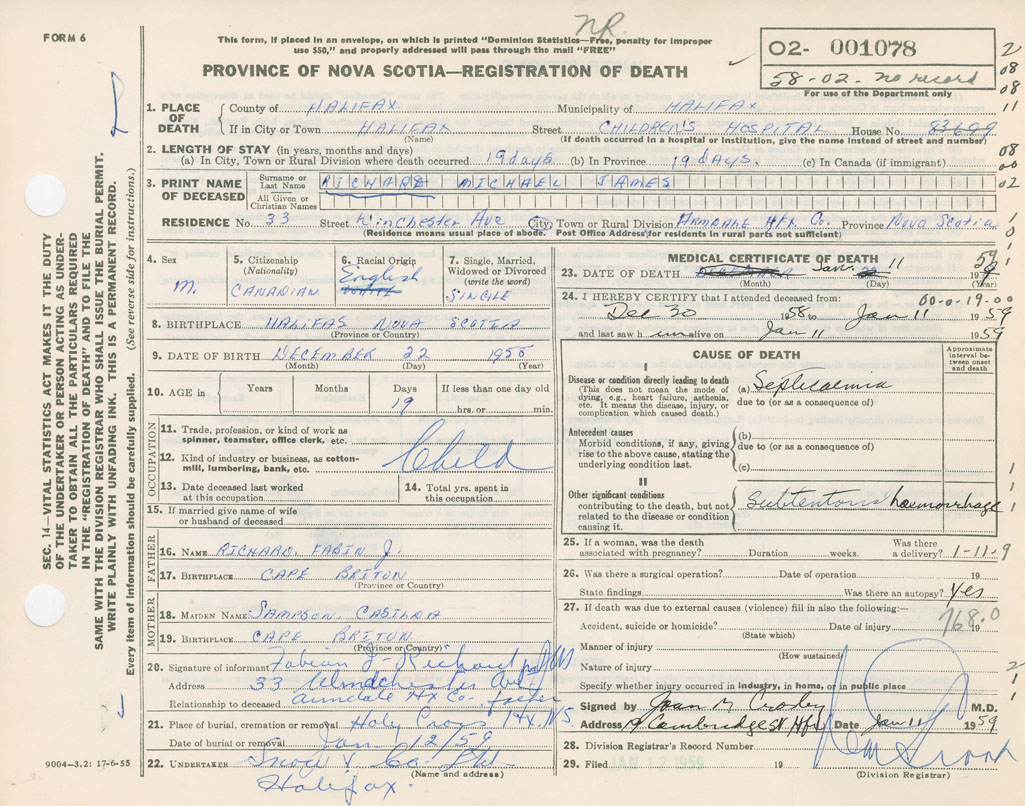 N.R.
FORM 6
This form, if placed in an envelope, on which is printed "Dominion Statistics—Free, penalty for improper
use $50," and properly addressed will pass through the mail "FREE"
PROVINCE OF NOVA SCOTIA—REGISTRATION OF DEATH
02- 001078
58-02- no record
For use of the Department only
1. PLACE OF DEATH
County of HALIFAX Municipality of HALIFAX
If in City or Town HALIFAX Street CHILDREN'S HOSPITAL House No. 83699
(Name) (If death occurred in a hospital or institution, give the name instead of street and number)
2. LENGTH OF STAY (in years, months and days)
(a) In City, Town or Rural Division where death occurred 19 days (b) In Province 19 days. (c) In Canada (if immigrant)
3. PRINT NAME OF DECEASED
Surname or Last Name RICHARD MICHAEL JAMES
All Given or Christian Names
RESIDENCE No. 33 Street Winchester Ave City, Town or Rural Division ARMDALE HFX Co. Province Nova Scotia
(Residence means usual place of abode. Post Office Address for residents in rural parts not sufficient)
4. Sex M.
5. Citizenship (Nationality) CANADIAN
6. Racial Origin English WHITE
7. Single, Married, Widowed or Divorced (write the word) SINGLE
8. BIRTHPLACE HALIFAS NOVA SCOTIA
(Province or Country)
9. DATE OF BIRTH DECEMBER 22 1958
(Month) (Day) (Year)
10. AGE in Years Months Days 19 If less than one day old hrs. or min.
OCCUPATION
11. Trade, profession, or kind of work as spinner, teamster, office clerk, etc.
12. Kind of industry or business, as cotton-mill, lumbering, bank, etc.
Child
13. Date deceased last worked at this occupation
14. Total yrs. spent in this occupation
15. If married give name of wife or husband of deceased
FATHER
16. NAME RICHARD, FABIN J.
17. BIRTHPLACE CAPE BRITON
(Province or Country)
MOTHER
18. MAIDEN NAME SAMPSON, CASILDA
19. BIRTHPLACE CAPE BRITON
(Province or Country)
20. Signature of informant Fabian J. Richard
Address 33 Winchester Ave
Armdale Hx Co.
Relationship to deceased father
21. Place of burial, cremation or removal Holy Cross Hx. N.S.
Date of burial or removal Jan 12/59
22. UNDERTAKER Snow & Co. Ltd
(Name and address)
Halifax.
9004—3.2: 17-6-55
MEDICAL CERTIFICATE OF DEATH
23. DATE OF DEATH Jan. 11 22 1959
(Month) (Day) (Year)
24. I HEREBY CERTIFY that I attended deceased from: 00-0-19-00
Dec 30 1958 to Jan 11 1959
and last saw h im alive on Jan 11 1959
CAUSE OF DEATH
Approximate interval between onset and death
I
Disease or condition directly leading to death
(This does not mean the mode of dying, e.g., heart failure, asthenia, etc. It means the disease, injury, or complication which caused death.)
(a) Septicaemia
due to (or as a consequence of)
Antecedent causes
Morbid conditions, if any, giving rise to the above cause, stating the underlying condition last.
(b)
due to (or as a consequence of)
(c)
II
Other significant conditions contributing to the death, but not related to the disease or condition causing it.
Subtentorial haemorrhage
25. If a woman, was the death associated with pregnancy? Duration weeks. Was there a delivery? 1-11-9
26. Was there a surgical operation? Date of operation 19
State findings Was there an autopsy? Yes
27. If death was due to external causes (violence) fill in also the following:—
Accident, suicide or homicide? Date of injury 19
768.0
(State which)
Manner of injury
(How sustained)
Nature of injury
Specify whether injury occurred in industry, in home, or in public place
Signed by Joan M. Crosby M.D.
Address 19 Cambridge St. Hfx Date Jan 11 1959
28. Division Registrar's Record Number
29. Filed JAN 12 1959 19
(Division Registrar)
SEC. 14—VITAL STATISTICS ACT MAKES IT THE DUTY
OF THE UNDERTAKER OR PERSON ACTING AS UNDER-
TAKER TO OBTAIN ALL THE PARTICULARS REQUIRED
IN THE "REGISTRATION OF DEATH" AND TO FILE THE
SAME WITH THE DIVISION REGISTRAR WHO SHALL ISSUE THE BURIAL PERMIT.
WRITE PLAINLY WITH UNFADING INK. THIS IS A PERMANENT RECORD.
Every item of information should be carefully supplied. (See reverse side for instructions.)